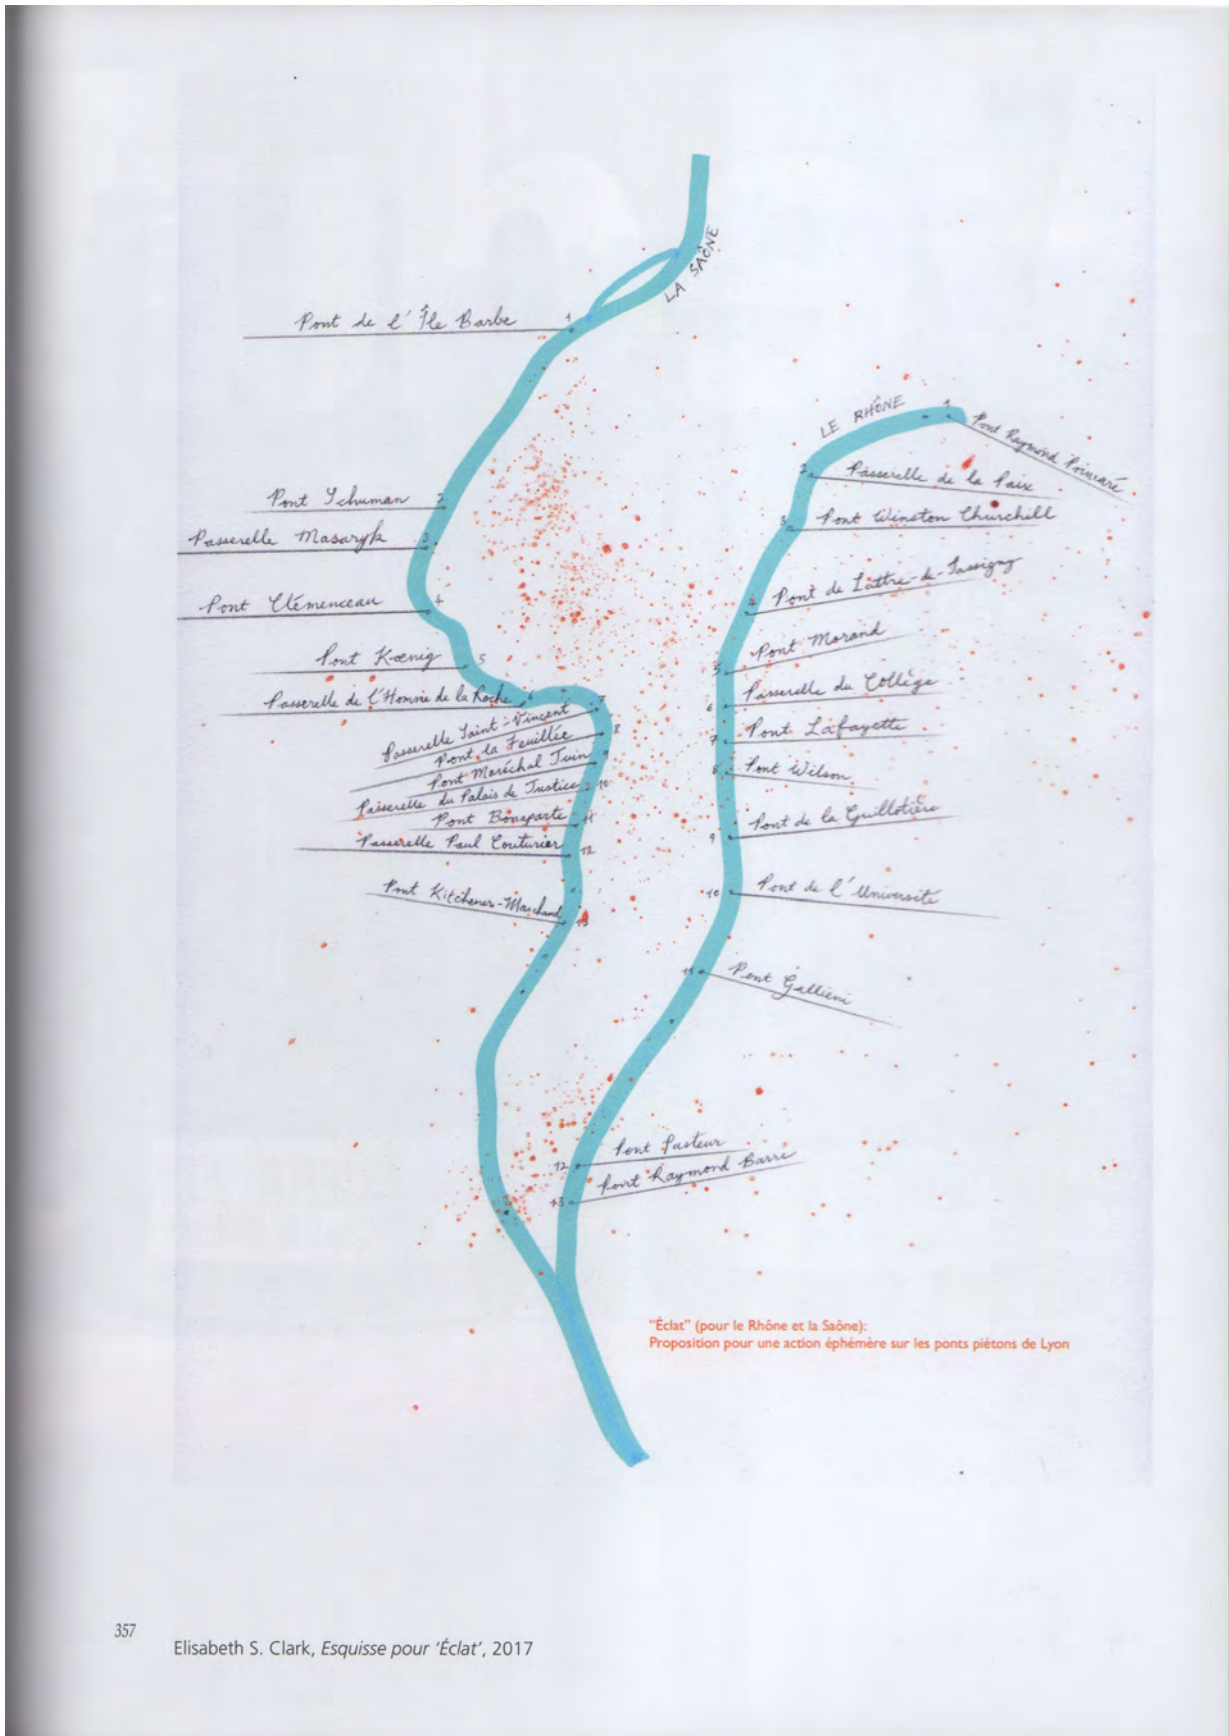 LA SAÔNE
Pont de l'Île Barbe
1
Pont Schuman
2
Passerelle Masaryk
3
Pont Clémenceau
4
Pont Kœnig
5
Passerelle de l'Homme de la Roche
6
Passerelle Saint-Vincent
7
Pont la Feuillée
8
Pont Maréchal Juin
9
Passerelle du Palais de Justice
10
Pont Bonaparte
11
Passerelle Paul Couturier
12
Pont Kitchener-Marchand
13
LE RHÔNE
1
Pont Raymond Poincaré
2
Passerelle de la Paix
3
Pont Winston Churchill
4
Pont de Lattre-de-Tassigny
5
Pont Morand
6
Passerelle du Collège
7
Pont Lafayette
8
Pont Wilson
9
Pont de la Guillotière
10
Pont de l'Université
11
Pont Gallieni
12
Pont Pasteur
13
Pont Raymond Barre
"Éclat" (pour le Rhône et la Saône):
Proposition pour une action éphémère sur les ponts piétons de Lyon
357
Elisabeth S. Clark, Esquisse pour 'Éclat', 2017